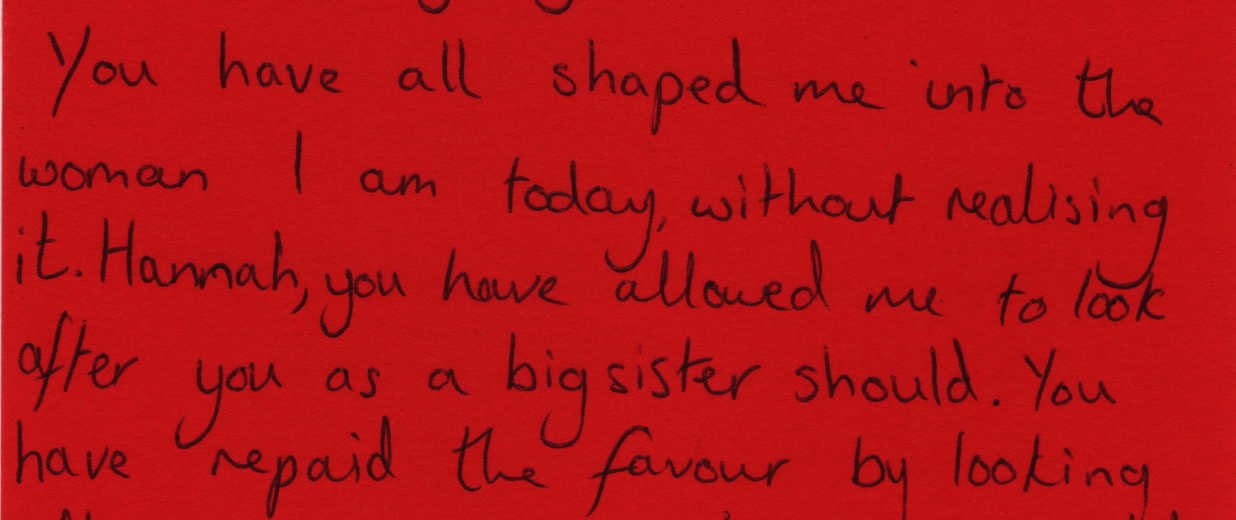 You have all shaped me into the
woman I am today, without realising
it. Hannah, you have allowed me to look
after you as a big sister should. You
have repaid the favour by looking